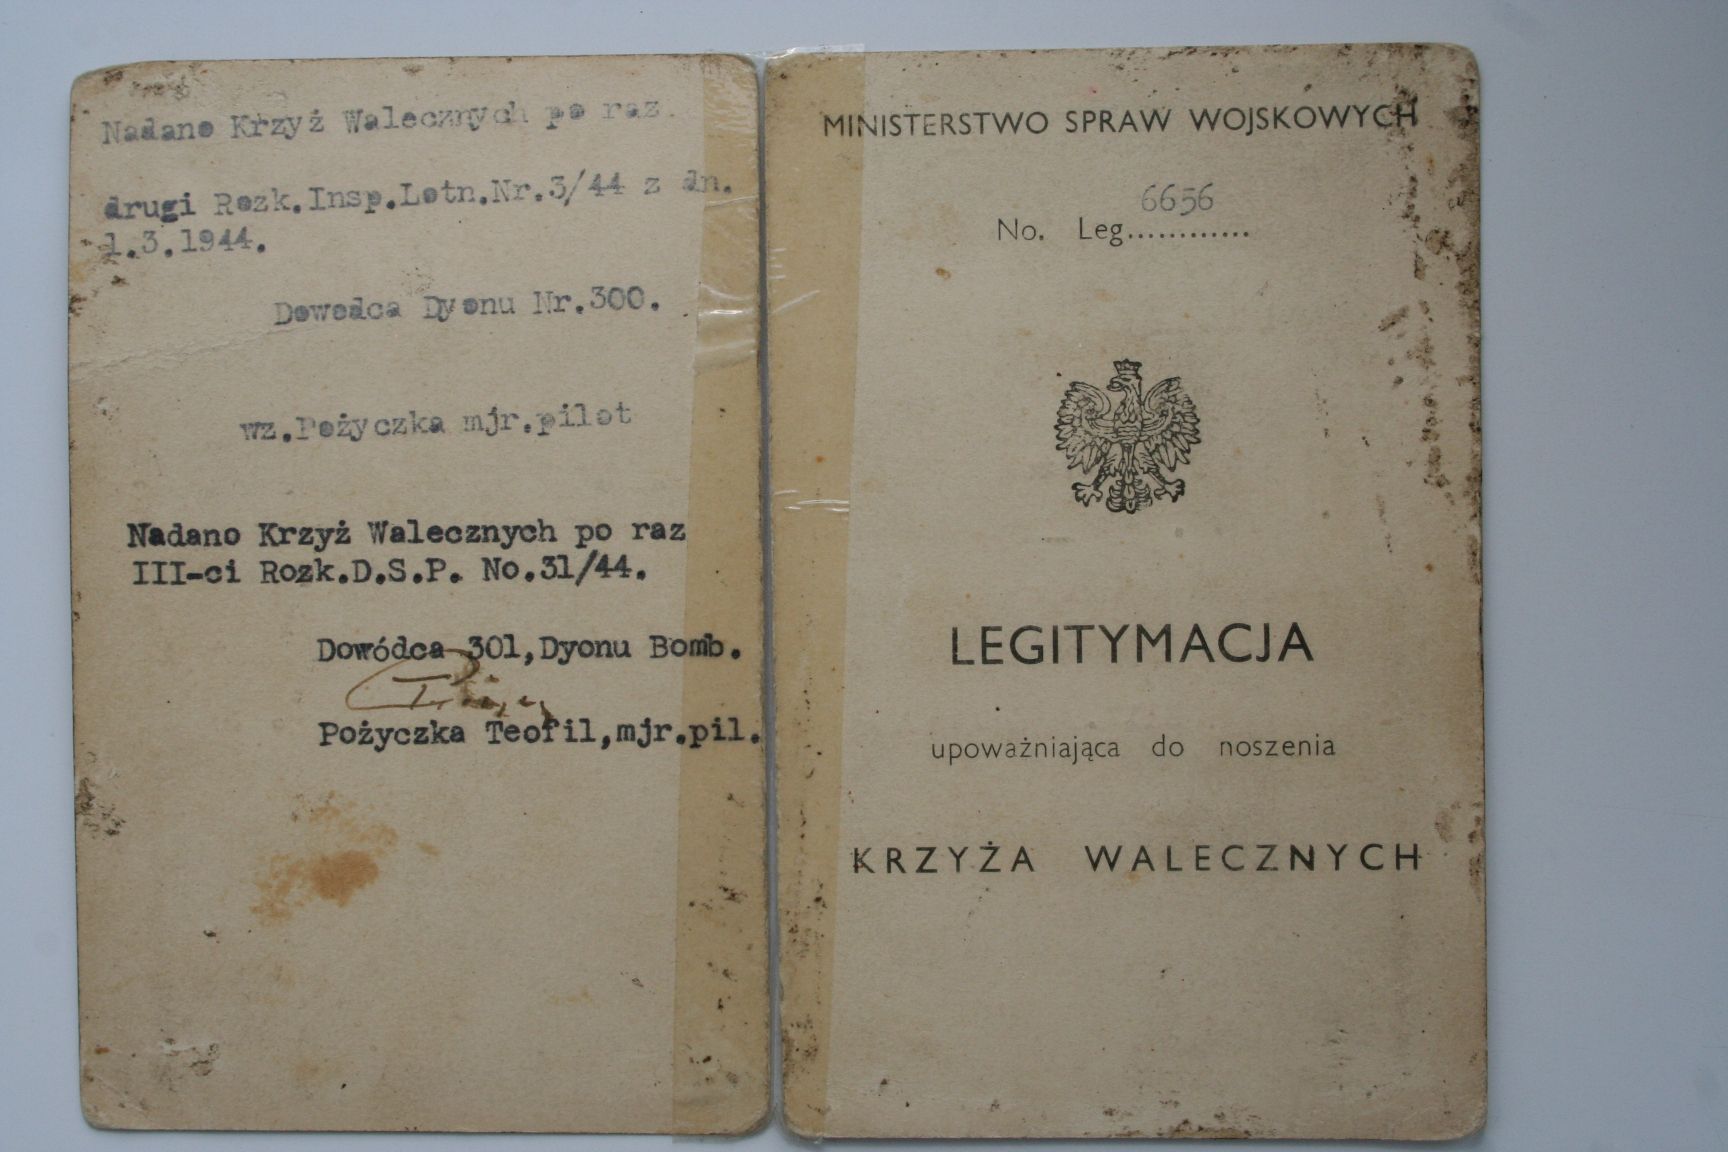 Nadano Krzyż Walecznych po raz
drugi Rozk.Insp.Lotn.Nr.3/44 z dn.
1.3.1944.
Dowodca Dyonu Nr.300.
wz.Pożyczka mjr.pilot
Nadano Krzyż Walecznych po raz
III-ci Rozk.D.S.P. No.31/44.
Dowódca 301,Dyonu Bomb.
Pożyczka Teofil,mjr.pil.
MINISTERSTWO SPRAW WOJSKOWYCH
6656
No. Leg............
LEGITYMACJA
upoważniająca do noszenia
KRZYŻA WALECZNYCH